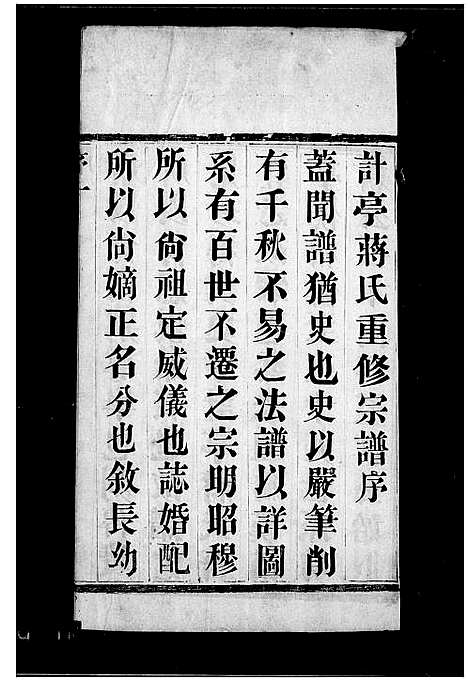 計亭蔣氏重修宗譜序
蓋聞譜猶史也史以嚴筆削
有千秋不易之法譜以詳圖
系有百世不遷之宗明昭穆
所以尚祖定威儀也誌婚配
所以尚嫡正名分也敘長幼